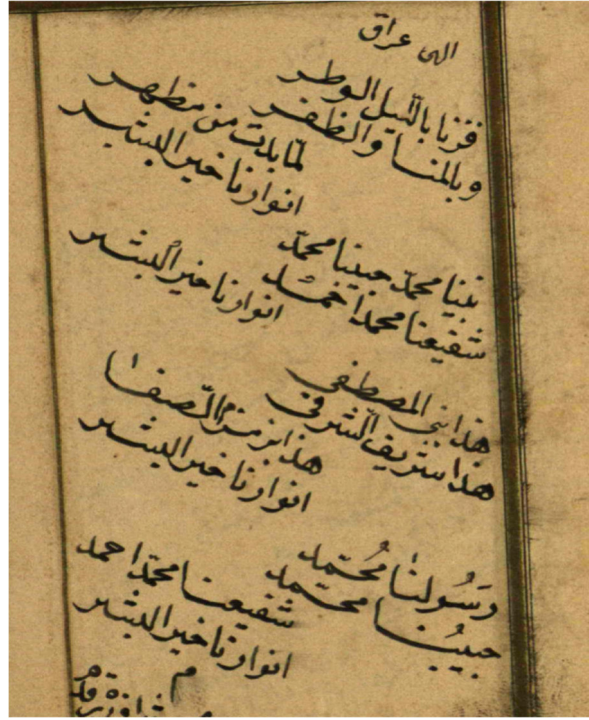 الهى عراق
فزنا بالنيل الوطر
وبالمنا والظفر
لما بدت من مظهر
انوارنا خير البشر
نبينا محمد حبيبنا محمد
شفيعنا محمد احمد
انوارنا خير البشر
هذا نبي المصطفى
هذا شريف الشرفى
هذا الصفا
انوارنا خير البشر
رسولنا محمد
حبيبنا محمد
شفيعنا محمد احمد
انوارنا خير البشر
م